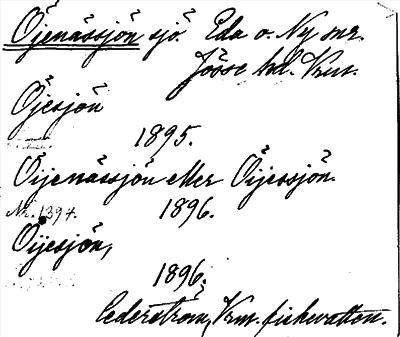 Öjenässjön sjö. Eda o. Ny snr.
Jösse hd. Vrm.
Öjesjön
1895.
Öijenässjön eller Öijessjön.
Nr. 1394. 1896.
Öijesjön,
1896.
Cederström, Vrm. fiskevatten.